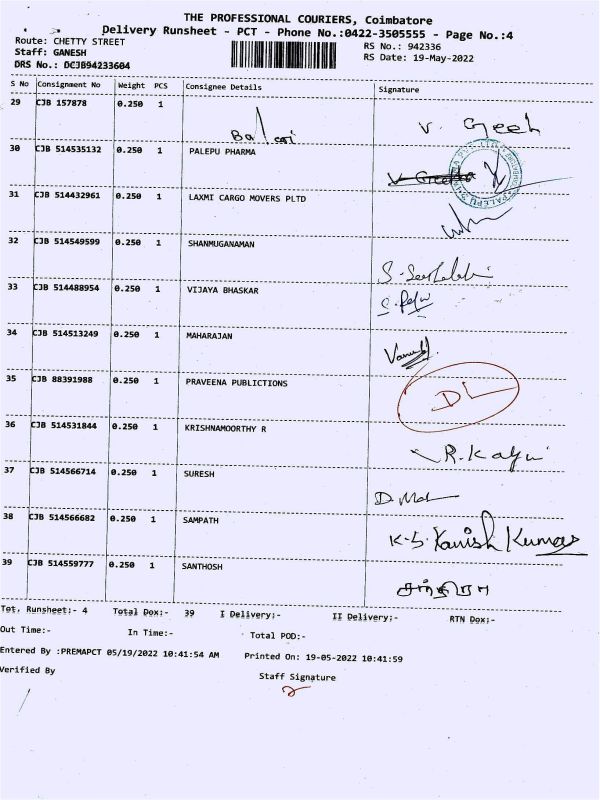 THE PROFESSIONAL COURIERS, Coimbatore
Delivery Runsheet - PCT - Phone No.:0422-3505555 - Page No.:4
Route: CHETTY STREET
RS No.: 942336
Staff: GANESH
RS Date: 19-May-2022
DRS No.: DCJB94233604
S No Consignment No Weight PCS Consignee Details Signature
29 CJB 157878 0.250 1
Balaji V. Geeth
30 CJB 514535132 0.250 1 PALEPU PHARMA
V Geetha
31 CJB 514432961 0.250 1 LAXMI CARGO MOVERS PLTD
32 CJB 514549599 0.250 1 SHANMUGANAMAN
33 CJB 514488954 0.250 1 VIJAYA BHASKAR
34 CJB 514513249 0.250 1 MAHARAJAN
35 CJB 88391988 0.250 1 PRAVEENA PUBLICTIONS
DL
36 CJB 514531844 0.250 1 KRISHNAMOORTHY R
37 CJB 514566714 0.250 1 SURESH
38 CJB 514566682 0.250 1 SAMPATH
K-S. Kavish Kumar
39 CJB 514559777 0.250 1 SANTHOSH
Tot. Runsheet:- 4 Total Dox:- 39 I Delivery:- II Delivery:- RTN Dox:-
Out Time:- In Time:- Total POD:-
Entered By :PREMAPCT 05/19/2022 10:41:54 AM Printed On: 19-05-2022 10:41:59
Verified By Staff Signature